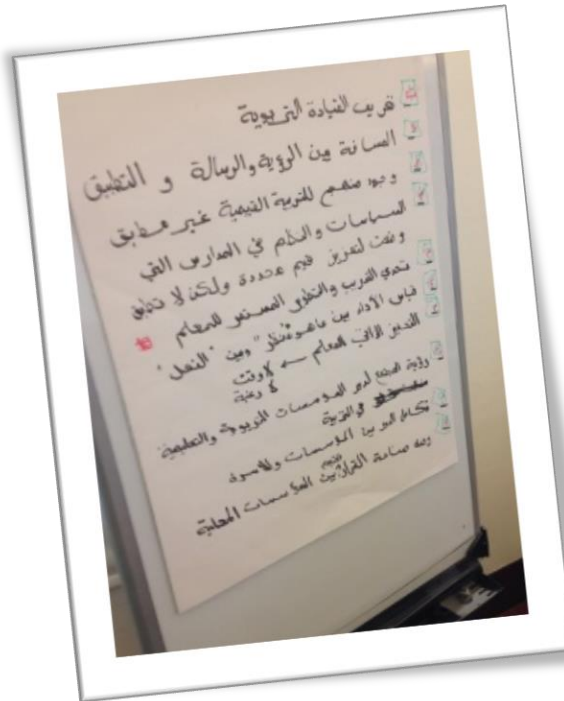 تغريب القيادة التربوية
المسافة بين الرؤية والرسالة و التطبيق
وجود منهج للتربية القيمية غير مطابق
السياسات والنظم في المدارس التي
وضعت لتعزيز قيم محددة ولكن لا تطبق
تحدي التدريب والتطوير المستمر للمعلم
قياس الأداء بين ما هو "منظر" وبين "الفعل"
التحفيز الذاتي للمعلم ← لا وقت
لا رغبة
رؤية المجتمع لدور المؤسسات التربوية والتعليمية
في التربية
تكامل الدور بين المؤسسات والأسرة
صناعة القرار بين المؤسسات المحلية